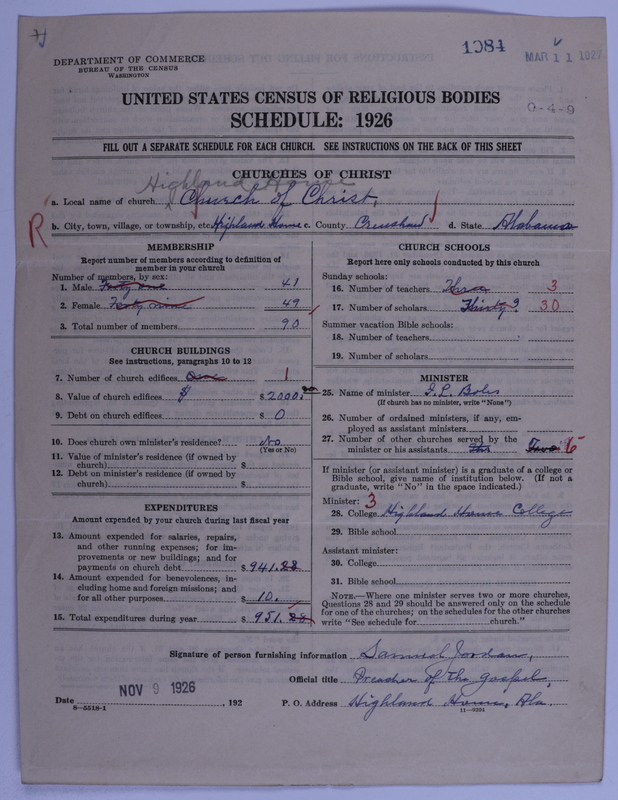 1084
MAR 11 1927
DEPARTMENT OF COMMERCE
BUREAU OF THE CENSUS
WASHINGTON
UNITED STATES CENSUS OF RELIGIOUS BODIES
0-4-9
SCHEDULE: 1926
FILL OUT A SEPARATE SCHEDULE FOR EACH CHURCH. SEE INSTRUCTIONS ON THE BACK OF THIS SHEET
CHURCHES OF CHRIST
Highland Home
a. Local name of church Church of Christ.
R
b. City, town, village, or township, etc. Highland Home c. County Crenshaw d. State Alabama
MEMBERSHIP
Report number of members according to definition of
member in your church
Number of members, by sex:
1. Male Forty one 41
2. Female Forty nine 49
3. Total number of members 90
CHURCH BUILDINGS
See instructions, paragraphs 10 to 12
7. Number of church edifices One 1
8. Value of church edifices $ $ 2000.00
9. Debt on church edifices $ 0
10. Does church own minister's residence? No
(Yes or No)
11. Value of minister's residence (if owned by
church) $
12. Debt on minister's residence (if owned by
church) $
EXPENDITURES
Amount expended by your church during last fiscal year
13. Amount expended for salaries, repairs,
and other running expenses; for im-
provements or new buildings; and for
payments on church debt $ 941.28
14. Amount expended for benevolences, in-
cluding home and foreign missions; and
for all other purposes $ 10.
15. Total expenditures during year $ 951.28
CHURCH SCHOOLS
Report here only schools conducted by this church
Sunday schools:
16. Number of teachers Three 3
17. Number of scholars Thirty? 30
Summer vacation Bible schools:
18. Number of teachers
19. Number of scholars
MINISTER
25. Name of minister I. L. Boles
(If church has no minister, write "None")
26. Number of ordained ministers, if any, em-
ployed as assistant ministers
27. Number of other churches served by the
minister or his assistants
If minister (or assistant minister) is a graduate of a college or
Bible school, give name of institution below. (If not a
graduate, write "No" in the space indicated.)
Minister: 3
28. College Highland Home College
29. Bible school
Assistant minister:
30. College
31. Bible school
NOTE.—Where one minister serves two or more churches,
Questions 28 and 29 should be answered only on the schedule
for one of the churches; on the schedules for the other churches
write "See schedule for church."
Signature of person furnishing information Samuel Jordan,
Official title Preacher of the gospel,
NOV 9 1926
Date , 192 P. O. Address Highland Home, Ala.
8-5518-1 11-9204